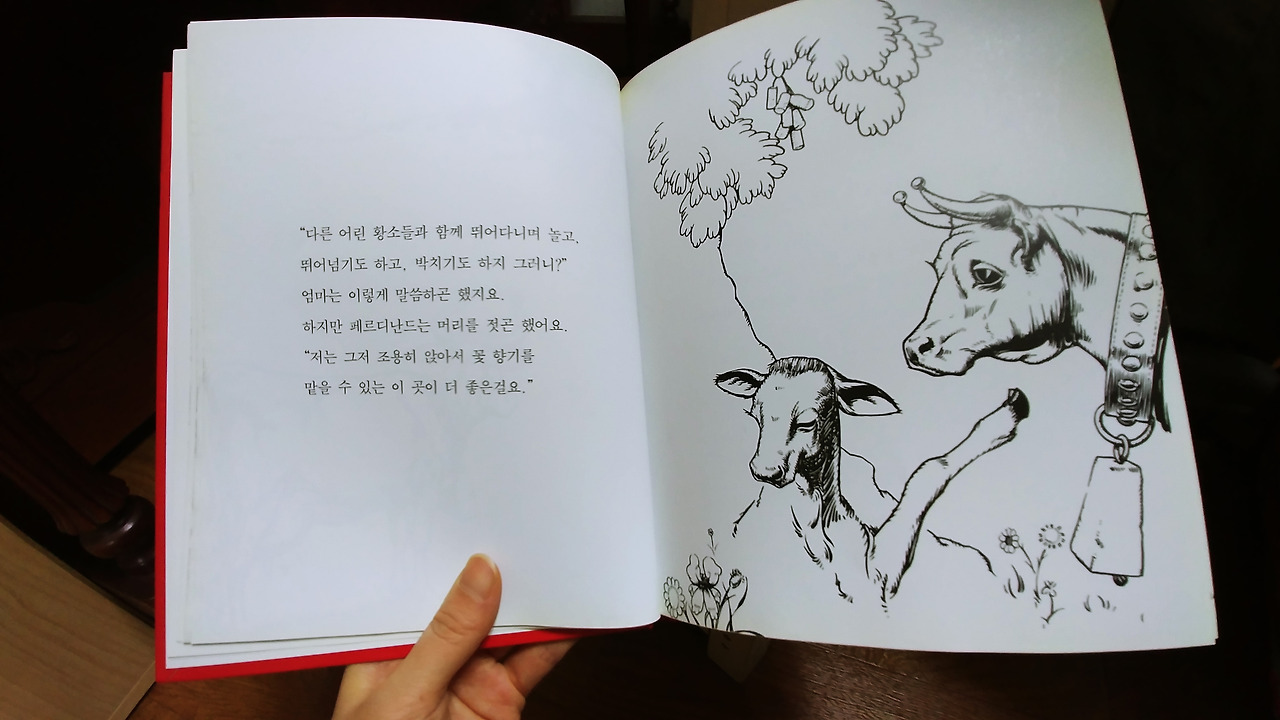 “다른 어린 황소들과 함께 뛰어다니며 놀고,
뛰어넘기도 하고, 박치기도 하지 그러니?”
엄마는 이렇게 말씀하곤 했지요.
하지만 페르디난드는 머리를 젓곤 했어요.
“저는 그저 조용히 앉아서 꽃 향기를
맡을 수 있는 이 곳이 더 좋은걸요.”